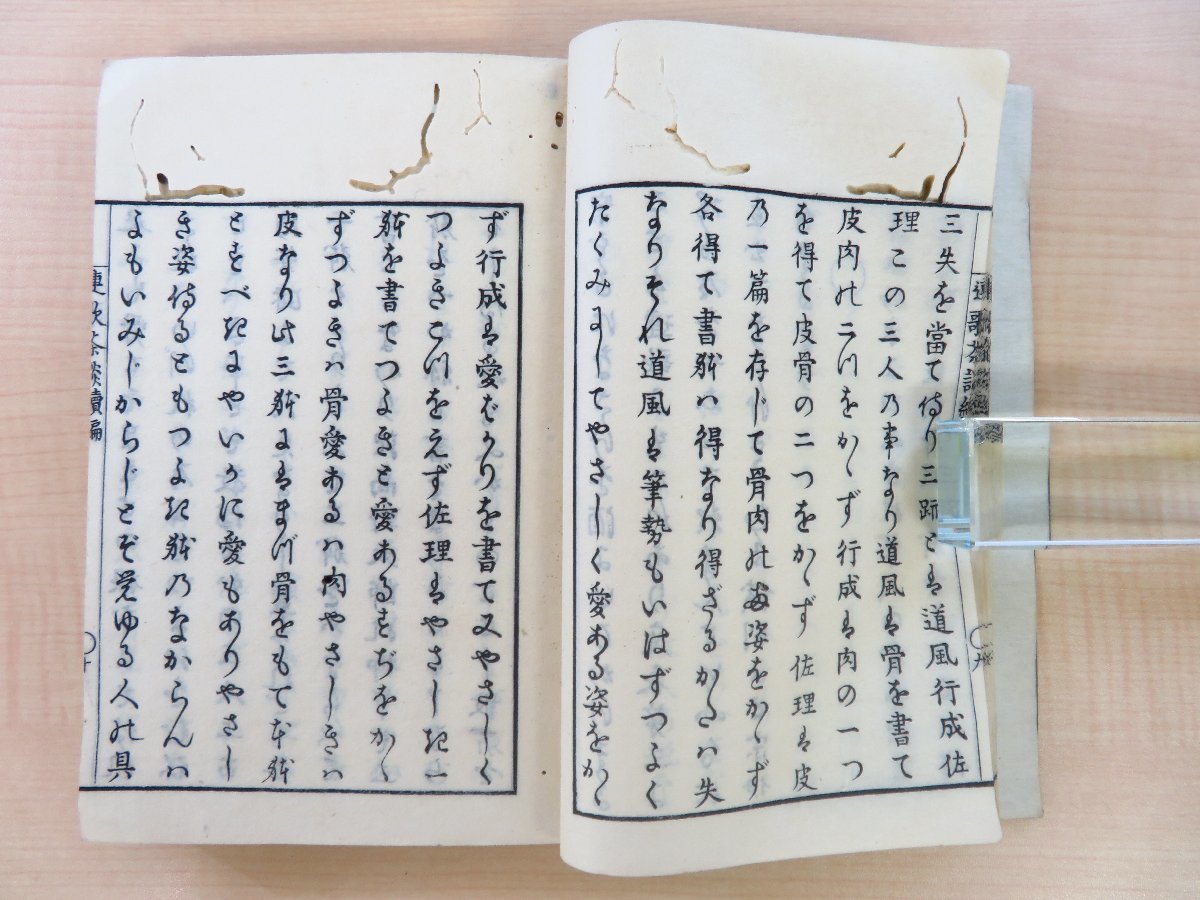 三失を當て侍り三跡とは道風行成佐
理この三人乃事なり道風は骨を書て
皮肉の二つをかゝず行成は肉の一つ
を得て皮骨の二つをかゝず佐理は皮
乃一篇を存じて骨肉の両姿をかゝず
各得て書躰ハ得なり得ざるかたハ失
なりそれ道風は筆勢もいはずつよく
たくみにしてやさしく愛ある姿をかゝ
ず行成は愛ばかりを書て又やさしく
つよきこつをえず佐理はやさしき一
躰を書てつよきと愛あるすぢをかゝ
ずつよきハ骨愛あるハ肉やさしきハ
皮なり此三躰には まづ骨をもて本躰
とすべきにやいかに愛もありやさし
き姿侍るともつよき躰乃なからんハ
よもいみじからじとぞ覚ゆる人の具
連歌茶談續編